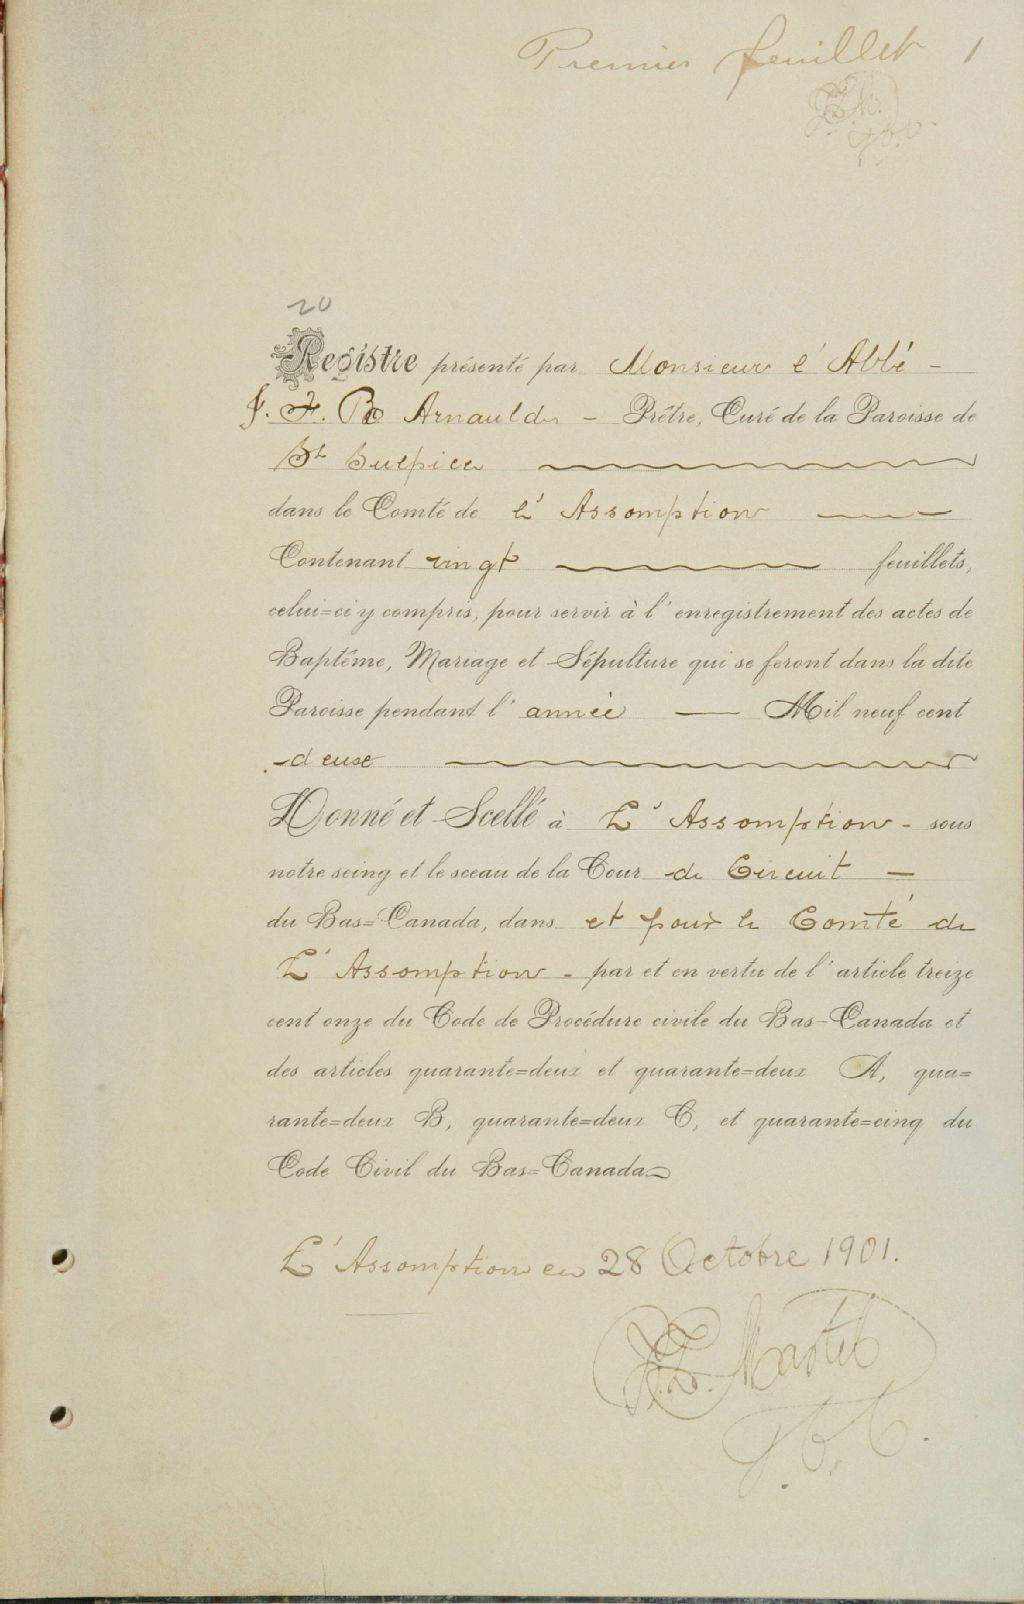 Premier feuillet 1
20
Registre présenté par Monsieur l'Abbé -
J. F. Arnauld - Prêtre, Curé de la Paroisse de
St Sulpice
dans le Comté de L'Assomption
Contenant vingt feuillets,
celui=ci y compris, pour servir à l'enregistrement des actes de
Baptême, Mariage et Sépulture qui se feront dans la dite
Paroisse pendant l'année — Mil neuf cent
-deux
Donné et Scellé à L'Assomption - sous
notre seing et le sceau de la Cour de Circuit —
du Bas=Canada, dans et pour le Comté de
L'Assomption - par et en vertu de l'article treize
cent onze du Code de Procédure civile du Bas-Canada et
des articles quarante=deux et quarante=deux A, qua=
rante=deux B, quarante=deux C, et quarante=cinq du
Code Civil du Bas=Canada
L'Assomption ce 28 Octobre 1901.
Martel